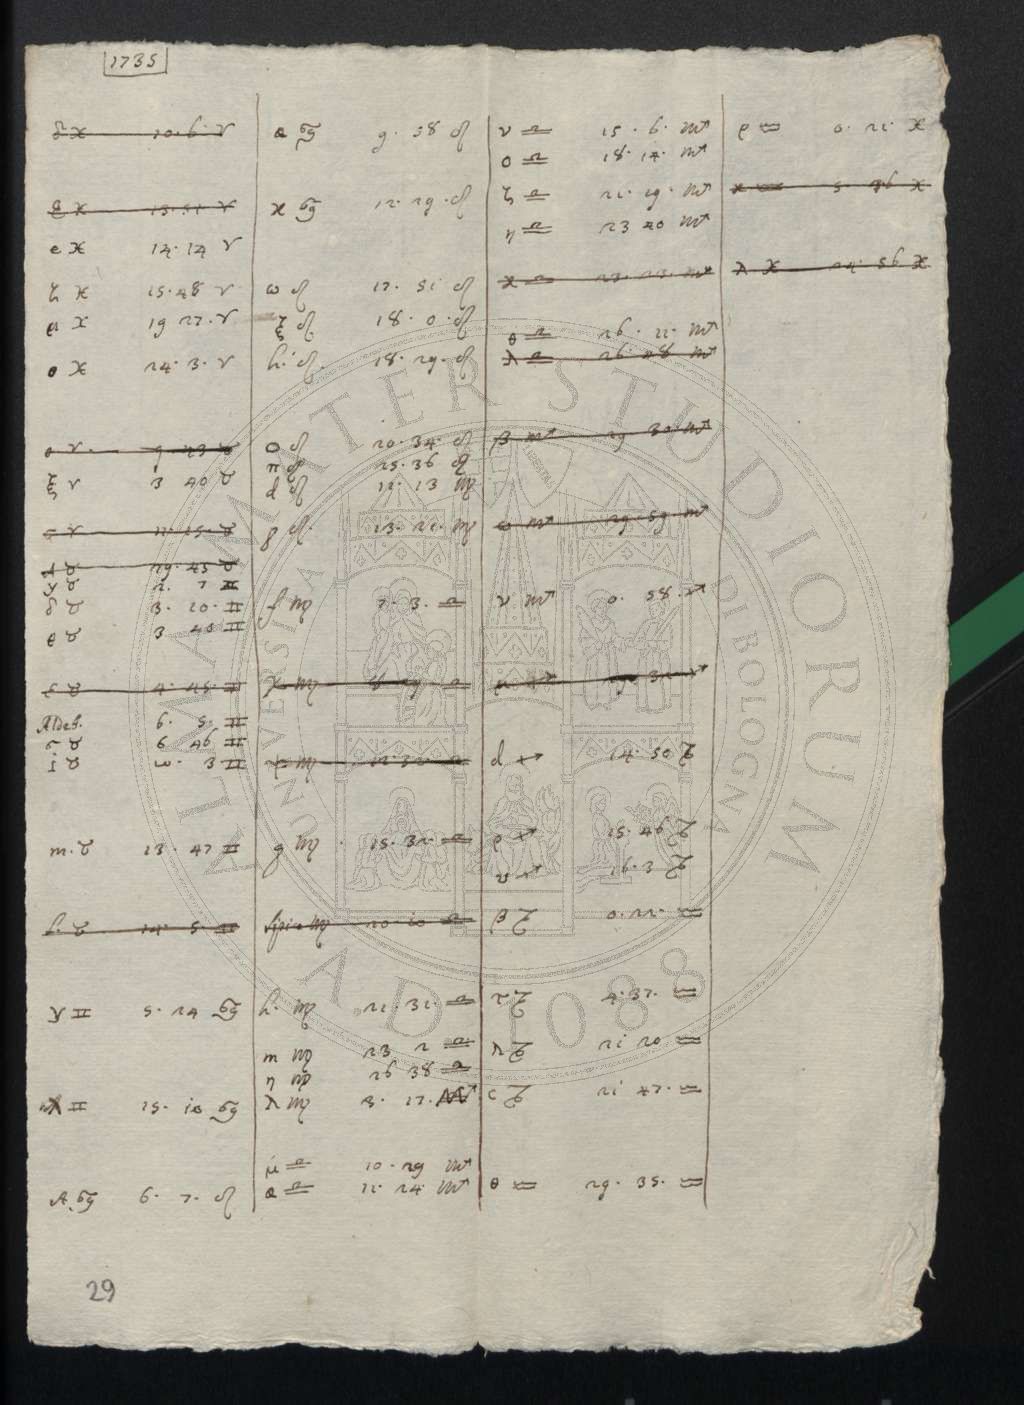 1735
δ ♓ 10. 6. ♈
♓ 13. 51 ♈
e ♓ 14. 14 ♈
ζ ♓ 15. 48 ♈
μ ♓ 19 27. ♈
o ♓ 24. 3. ♈
o ♈. 9 23 ♉
ξ ♈ 3 40 ♉
σ ♈ 11. 15. ♉
♉ 29. 45 ♉
γ ♉ 2. 7 ♊
δ ♉ 3. 20. ♊
ρ ♉ 3 40 ♊
♉ 4. 45. ♊
Aldeb. 6. 5. ♊
σ ♉ 6 46 ♊
i ♉ 10. 3 ♊
m. ♉ 13. 47 ♊
l. ♉ 14. 5. ♊
γ ♊ 5. 24 ♋
λ ♊ 15. 10 ♋
A. ♋ 6. 7. ♌
a ♋ 9. 38 ♌
κ ♋ 12. 29. ♌
ω ♌ 17. 51 ♌
ξ ♌. 18. 0. ♌
h. ♌. 18. 29. ♌
o ♌ 20. 34. ♌
π ♌ 25. 36 ♌
d ♌ 12. 13 ♍
♌. 13. 21. ♍
f ♍ 7. 3. ♎
χ ♍ 8 ♎
♍ ♎
g ♍. 15. 32. ♎
Spica ♍ 20. 10 ♎
h. ♍ 21. 31. ♎
m ♍ 23 2 ♎
η ♍ 26 38 ♎
λ ♍ 3. 17. ♏
μ ♎ 10. 29 ♏
a ♎ 11. 24. ♏
ν ♎ 15. 6. ♏
o ♎ 18. 14. ♏
ζ ♎ 21. 19. ♏
η ♎ 23 40 ♏
κ ♎ 23. 23. ♏
θ ♎ 26. 21. ♏
λ ♎ 26. 48 ♏
β ♏ 29 30. ♏
ω ♏ 29. 59. ♏
ν ♏ 0. 58. ♐
μ ♐
d ♐ 14. 50 ♑
ρ ♐ 15. 46 ♑
υ ♐ 16. 3 ♑
β ♑ 0. 22. ♒
τ ♑ 4. 37. ♒
λ ♑ 21 20 ♒
c ♑ 21 47. ♒
θ ♒ 29. 35. ♒
ρ ♒ 0. 21. ♓
κ ♒ 5. 36 ♓
λ ♓ 24. 56 ♓
29
ALMA MATER STUDIORUM
A.D. 1088
UNIVERSITÀ DI BOLOGNA